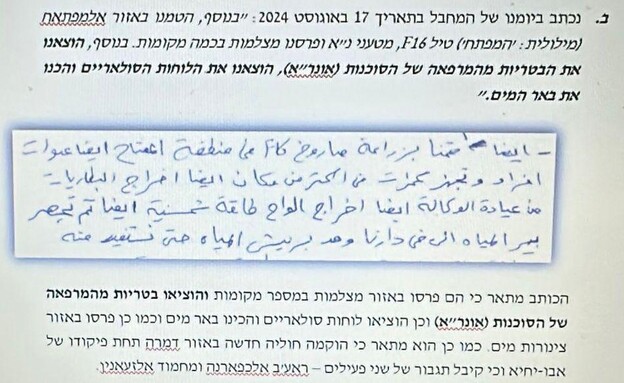 ב. נכתב ביומנו של המחבל בתאריך 17 באוגוסט 2024: "בנוסף, הטמנו באזור אלמפתאח
(מילולית: 'המפתח') טיל F16, מטעני נ"א ופרסנו מצלמות בכמה מקומות. בנוסף, הוצאנו
את הבטריות מהמרפאה של הסוכנות (אונר"א), הוצאנו את הלוחות הסולאריים והכנו
את באר המים."
- ايضا قمنا بزراعة صاروخ في منطقة المفتاح ايضا عبوات
افراد وتجهيز كمرات في اكثر من مكان ايضا اخراج البطاريات
من عيادة الوكالة ايضا اخراج الواح طاقة شمسية ايضا تم تجهيز
بير المياه الي في دارنا ومد برابيش المياه حتى نستفيد منه
הכותב מתאר כי הם פרסו באזור מצלמות במספר מקומות והוציאו בטריות מהמרפאה
של הסוכנות (אונר"א) וכן הוציאו לוחות סולאריים והכינו באר מים וכמו כן פרסו באזור
צינורות מים. כמו כן הוא מתאר כי הוקמה חוליה חדשה באזור דמרה תחת פיקודו של
אבו-יחיא וכי קיבל תגבור של שני פעילים – ראע'ב אלכפארנה ומחמוד אלזעאנין.